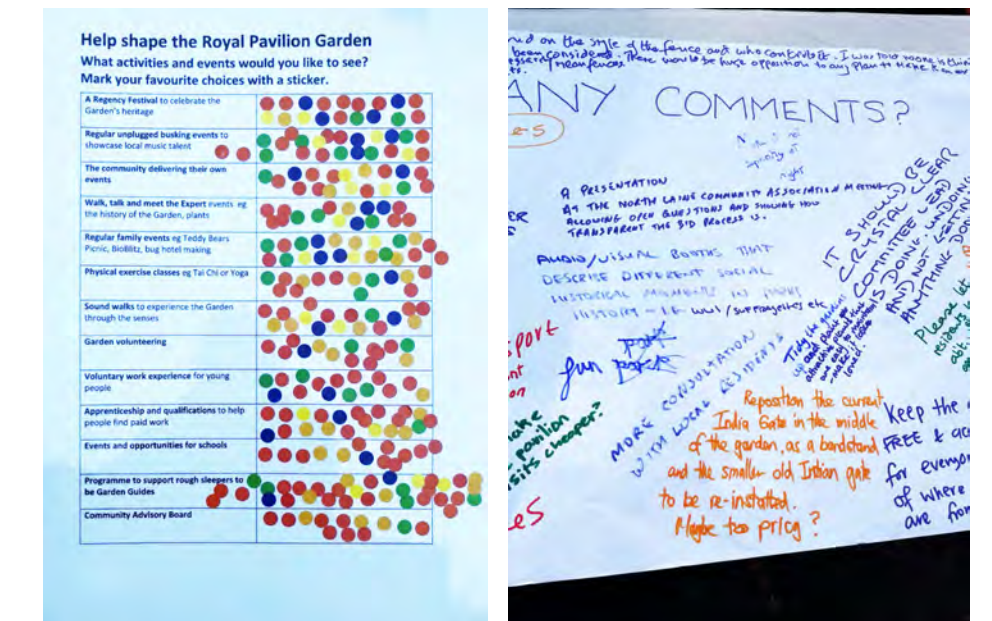 Help shape the Royal Pavilion Garden
What activities and events would you like to see?
Mark your favourite choices with a sticker.
A Regency Festival to celebrate the
Garden's heritage
Regular unplugged busking events to
showcase local music talent
The community delivering their own
events
Walk, talk and meet the Expert events eg
the history of the Garden, plants
Regular family events eg Teddy Bears
Picnic, BioBlitz, bug hotel making
Physical exercise classes eg Tai Chi or Yoga
Sound walks to experience the Garden
through the senses
Garden volunteering
Voluntary work experience for young
people
Apprenticeship and qualifications to help
people find paid work
Events and opportunities for schools
Programme to support rough sleepers to
be Garden Guides
Community Advisory Board
on the style of the fence and who controls it. I was told no one is
been considered. There would be huge opposition to any plan to make
ANY COMMENTS?
right
A PRESENTATION
AT THE NORTH LAINE COMMUNITY ASSOCIATION MEETING
ALLOWING OPEN QUESTIONS AND SHOWING HOW
TRANSPARENT THE BID PROCESS IS.
AUDIO/VISUAL BOOTHS THAT
DESCRIBE DIFFERENT SOCIAL
HISTORICAL MOMENTS IN
HISTORY - I.E WW1/suffragettes etc
fun
MORE CONSULTATION
WITH LOCAL RESIDENTS
Tidy the gardens
up and plant
attractive plants that
are easy to maintain
IT SHOULD BE
CRYSTAL CLEAR
COMMITTEE LEAD
IS DOING
AND NOT LETTING
ANYTHING
Please
residents
pavilion
cheaper?
Reposition the current
India Gate in the middle
of the garden, as a bandstand
and the smaller old Indian gate
to be re-installed.
Maybe too pricy?
Keep the
FREE &
for everyone
of where
are from